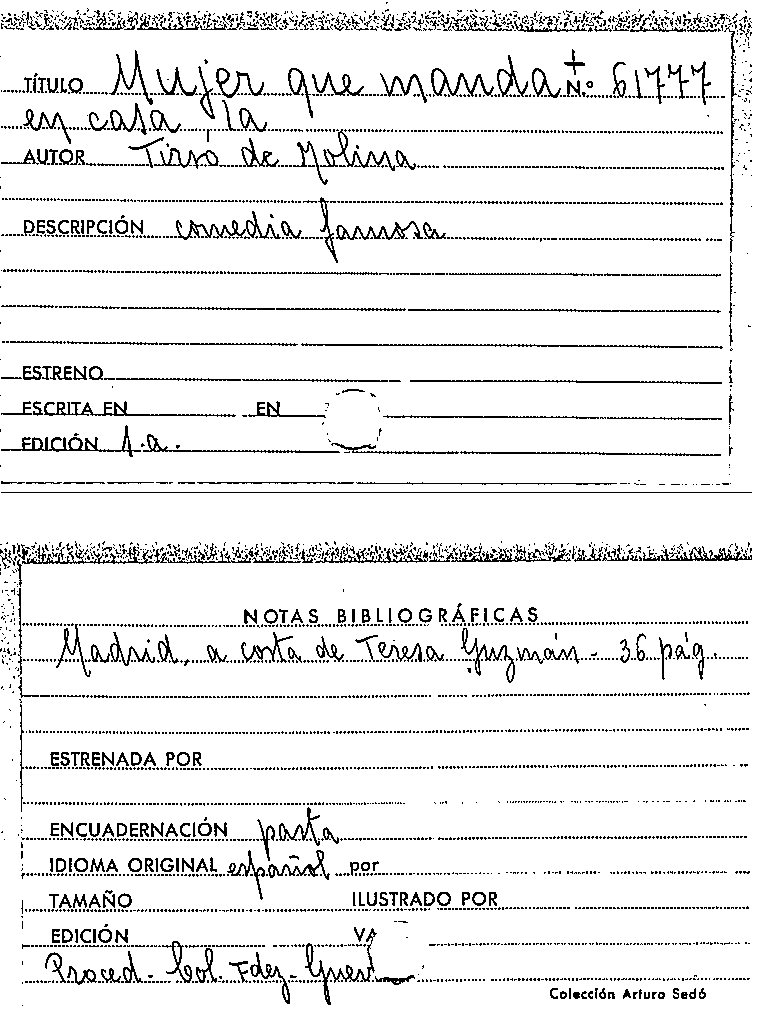 TÍTULO Mujer que manda + N.º 61777
en casa la
AUTOR Tirso de Molina
DESCRIPCIÓN comedia famosa
ESTRENO
ESCRITA EN EN
EDICIÓN s.a.
NOTAS BIBLIOGRÁFICAS
Madrid, a costa de Teresa Guzmán - 36 pág.
ESTRENADA POR
ENCUADERNACIÓN pasta
IDIOMA ORIGINAL español por
TAMAÑO ILUSTRADO POR
EDICIÓN
Proced. Col. Fdez-
Colección Arturo Sedó